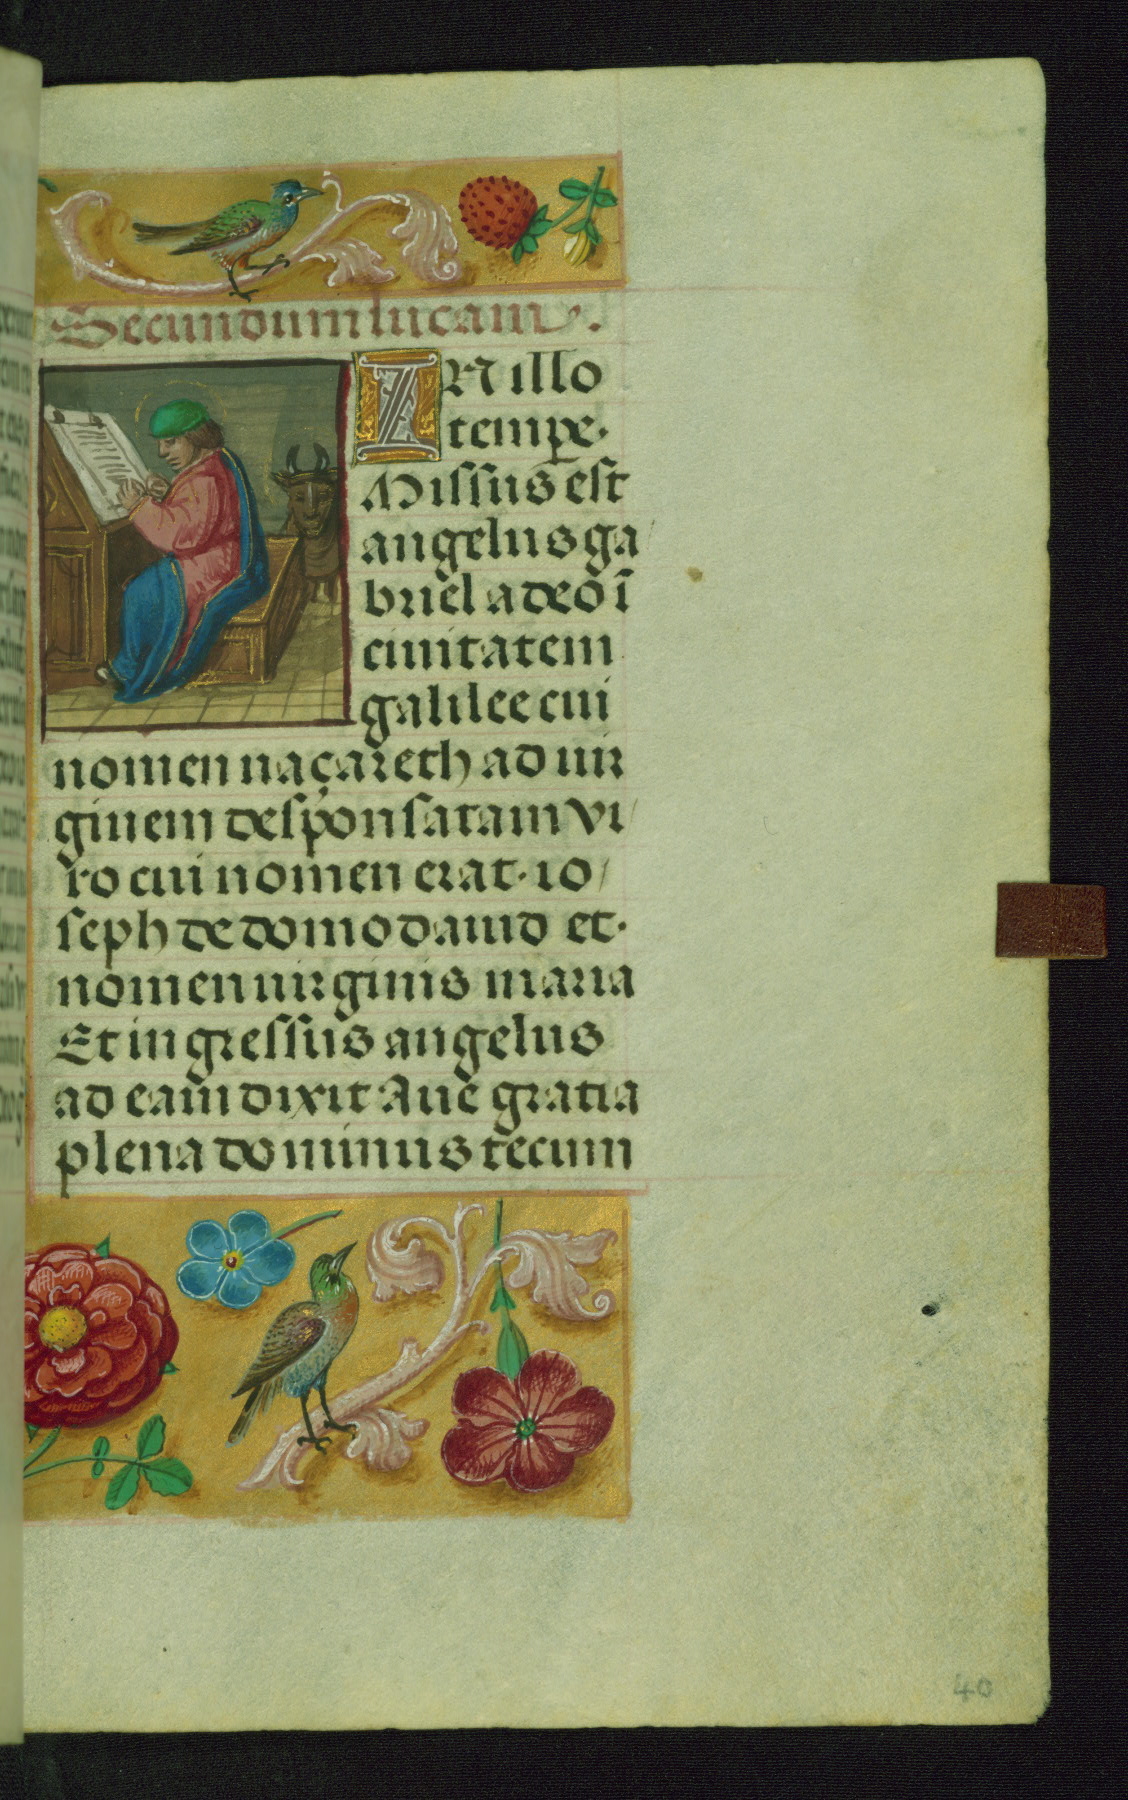 Secundum lucam.
IN illo
tempe.
Missus est
angelus ga
briel a deo ī
ciuitatem
galilee cui
nomen naçareth ad uir
ginem desponsatam vi
ro cui nomen erat. io
seph de domo dauid et.
nomen uirginis maria
Et ingressus angelus
ad eam dixit Aue gratia
plena dominus tecum
40